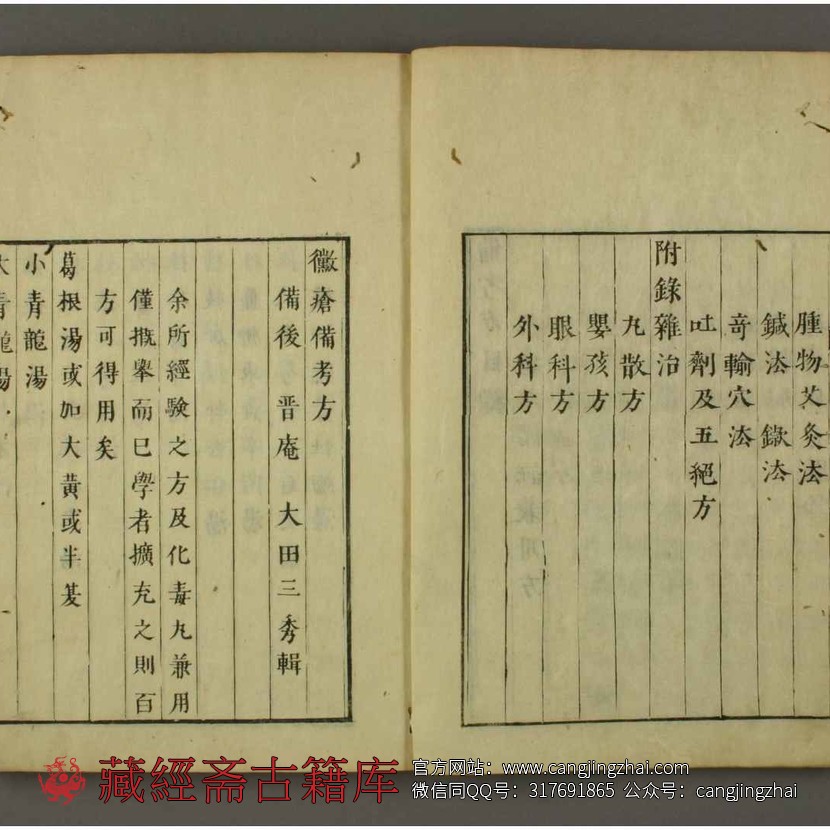 腫物艾灸法
鍼法 鐓法
奇輸穴法
吐劑及五絕方
附錄雜治
丸散方
嬰孩方
眼科方
外科方
黴瘡備考方
備後 晋庵 大田三秀輯
余所經驗之方及化毒丸兼用
僅概舉而已學者擴充之則百
方可得用矣
葛根湯或加大黃或半芰
小青龍湯
大青龍湯
藏經斋古籍库
官方网站：www.cangjingzhai.com
微信同QQ号：317691865 公众号：cangjingzhai